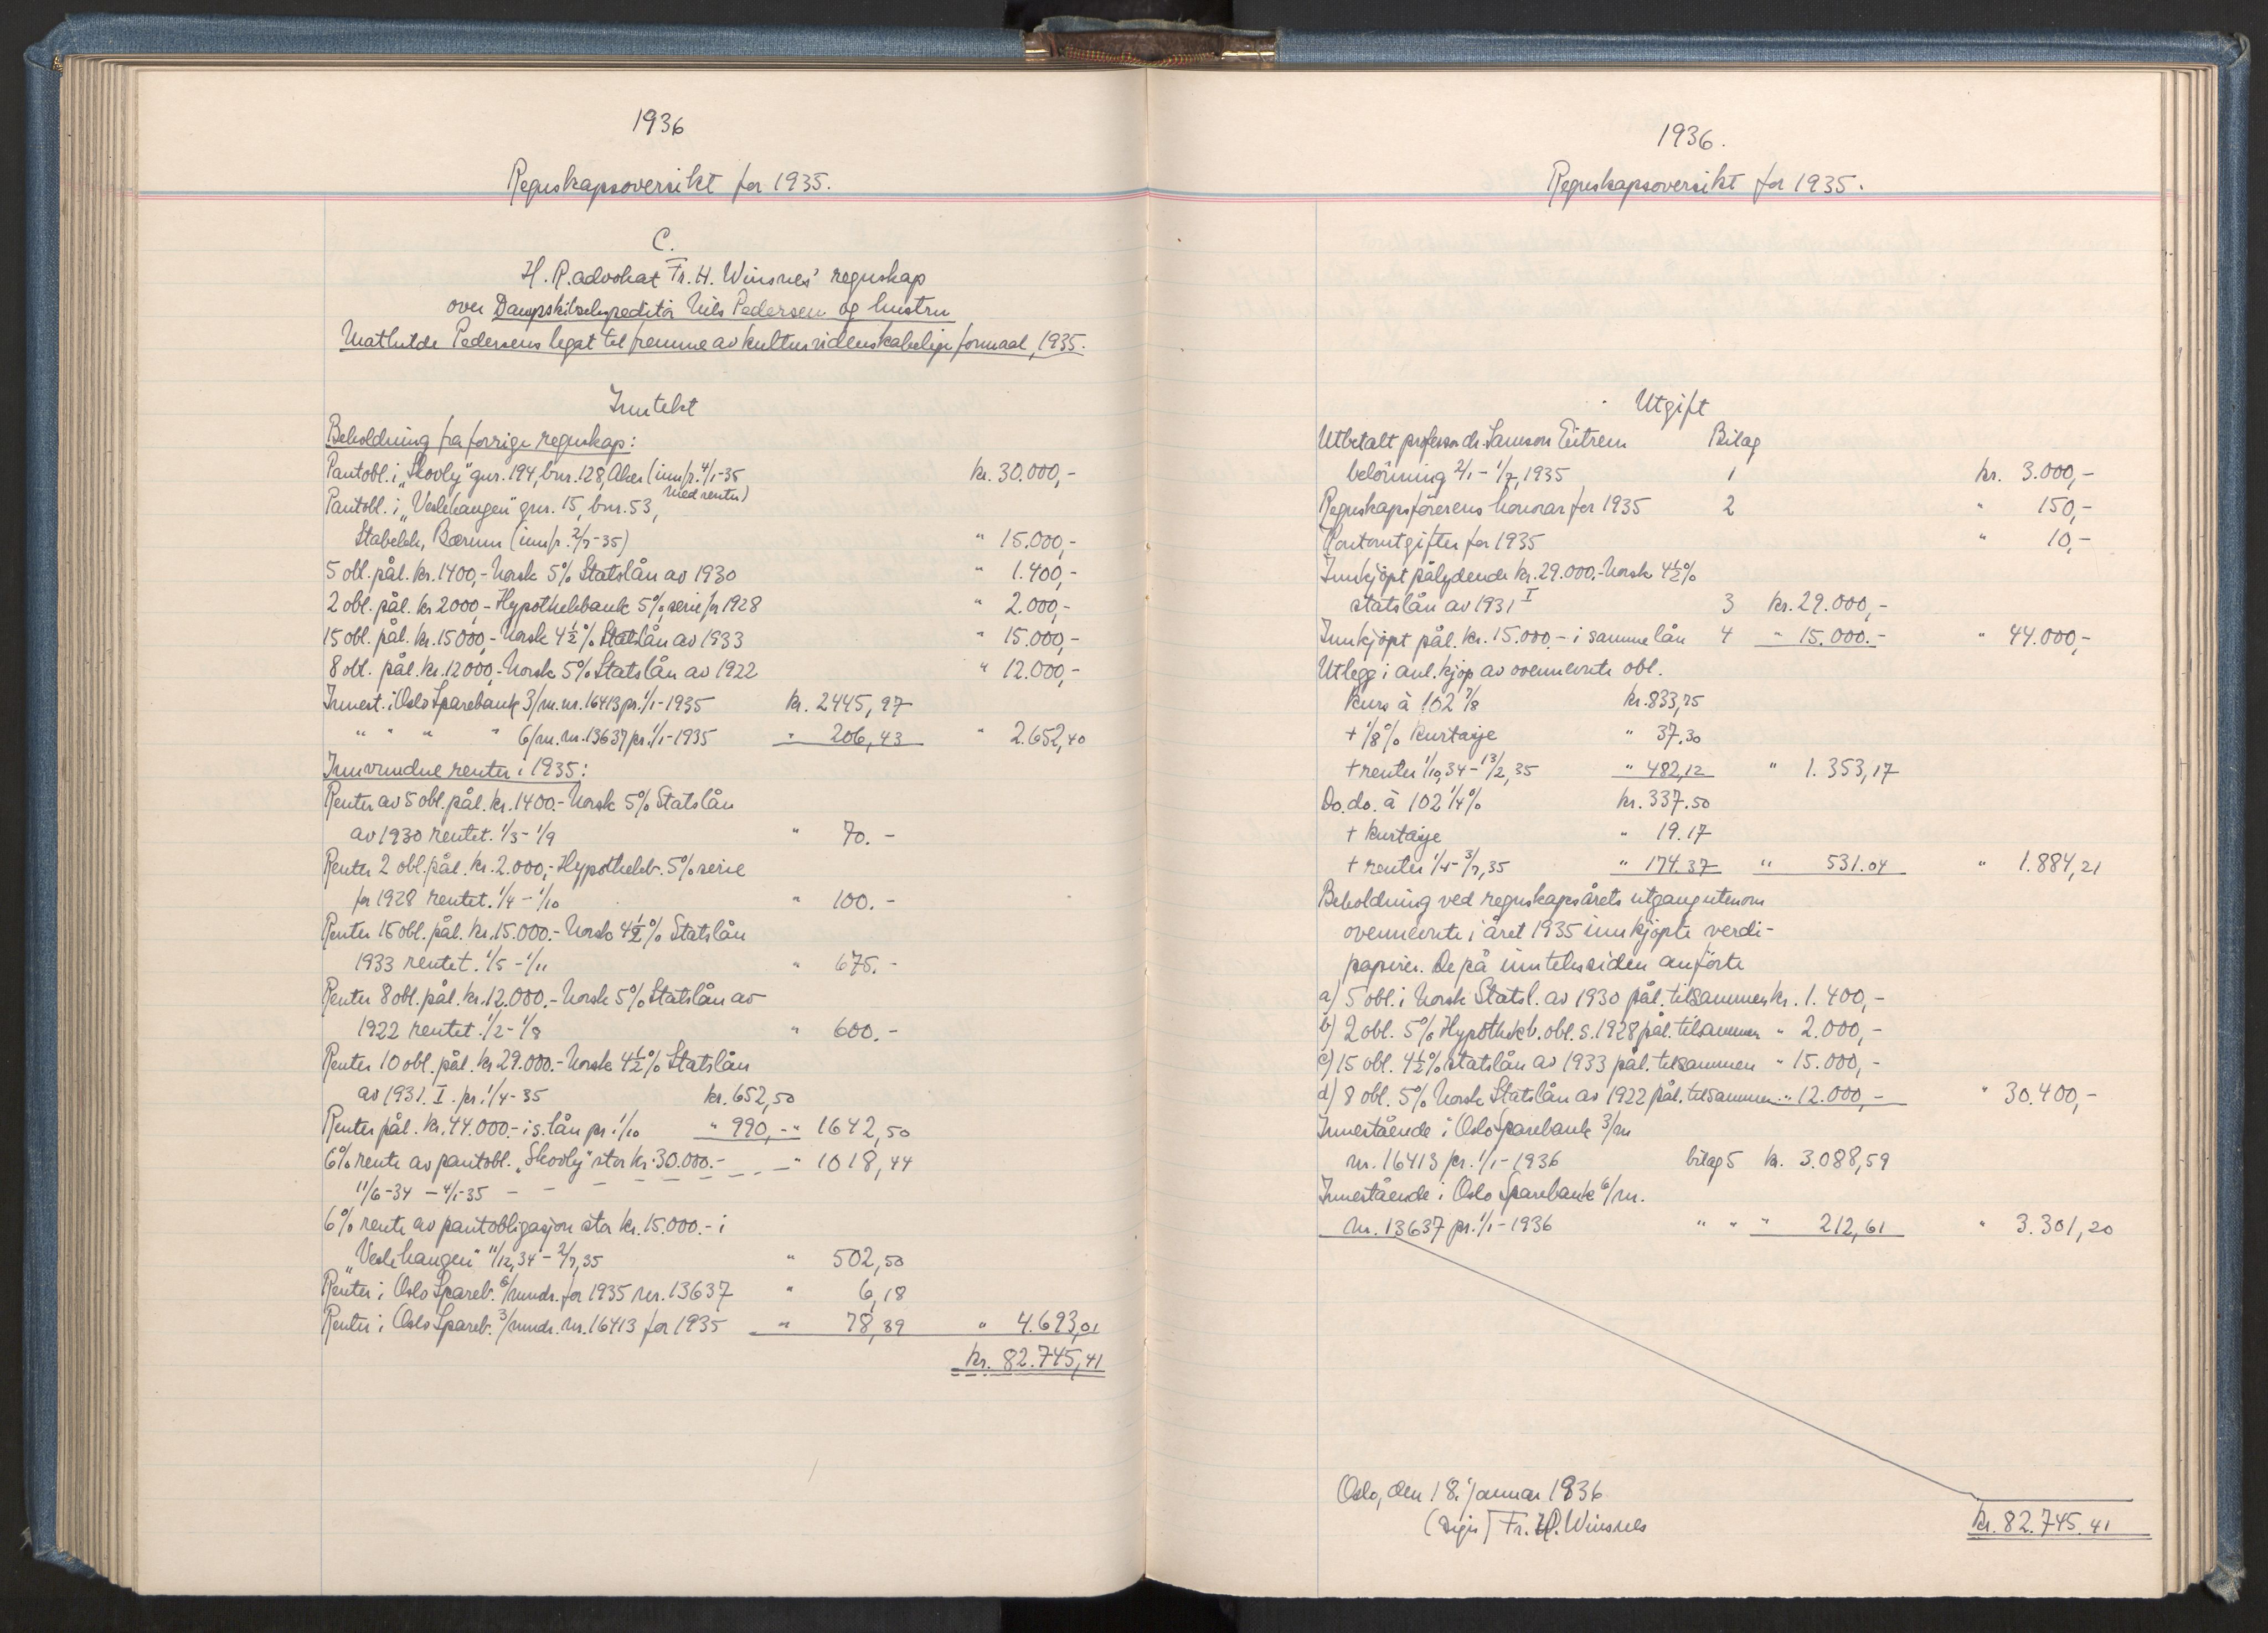 1936
Regnskapsoversikt for 1935.
C.
H. R. advokat Fr. H. Winsnes' regnskap
over Dampskibsekspeditør Nils Pedersen og hustru
Mathilde Pedersens legat til fremme av kulturvidenskabelige formaal, 1935.
Inntekt
Beholdning fra forrige regnskap:
Pantobl. i „Skovly" gnr. 194, bnr. 128, Aker (innfr. 4/1-35 kr. 30.000,-
med renter)
Pantobl. i „Veslehaugen" gnr. 15, bnr. 53,
Stabekk, Bærum (innfr. 2/7-35) " 15.000,-
5 obl. pål. kr. 1400,- Norsk 5% Statslån av 1930 " 1.400,-
2 obl. pål. kr 2000,- Hypothekbank 5% serie for 1928 " 2.000,-
15 obl. pål. kr. 15000,- Norsk 4½% Statslån av 1933 " 15.000,-
8 obl. pål. kr. 12000,- Norsk 5% Statslån av 1922 " 12.000,-
Innest. i Oslo Sparebank 3/m. nr. 16413 pr. 1/1-1935 kr. 2445,97
" " " " 6/m. nr. 13637 pr. 1/1-1935 " 206,43 " 2.652,40
Innvundne renter i 1935:
Renter av 5 obl. pål. kr. 1400.- Norsk 5% Statslån
av 1930 rentet. 1/3-1/9 " 70.-
Renter 2 obl. pål. kr. 2.000,- Hypothekb. 5% serie
for 1928 rentet. 1/4-1/10 " 100.-
Renter 15 obl. pål. kr. 15.000.- Norsk 4½% Statslån
1933 rentet. 1/5-1/11 " 675.-
Renter 8 obl. pål. kr. 12.000.- Norsk 5% Statslån av
1922 rentet. 1/2-1/8 " 600.-
Renter 10 obl. pål. kr 29.000.- Norsk 4½% Statslån
av 1931. I. pr. 1/4-35 kr. 652,50
Renter pål. kr. 44.000.- i s. lån pr. 1/10 " 990,- " 1642,50
6% rente av pantobl. „Skovly" stor kr. 30.000.- " 1018,44
11/6-34 - 4/1-35
6% rente av pantobligasjon stor kr. 15.000.- i
„Veslehaugen" 11/12,34 - 2/7,35 " 502,50
Renter i Oslo Spareb. 6/mndr. for 1935 nr. 13637 " 6,18
Renter i Oslo Spareb. 3/mndr. nr. 16413 for 1935 " 78,39 " 4.693,01
kr. 82.745,41
1936.
Regnskapsoversikt for 1935.
Utgift
Utbetalt professor dr. Samson Eitrem Bilag
belönning 2/1-1/7, 1935 1 kr. 3.000,-
Regnskapsförerens honorar for 1935 2 " 150,-
Kontorutgifter for 1935 " 10,-
Innkjöpt pålydende kr. 29.000.- Norsk 4½%
statslån av 1931 I 3 kr. 29.000,-
Innkjöpt pål. kr. 15.000.- i samme lån 4 " 15.000.- " 44.000,-
Utlegg i anl. kjöp av ovennevnte obl.
kurs à 102 7/8 kr. 833,75
+ 1/8% kurtasje " 37.30
+ renter 1/10,34-13/2,35 " 482,12 " 1.353,17
Do. do. à 102 1/4% kr. 337.50
+ kurtasje " 19.17
+ renter 1/4-3/7,35 " 174.37 " 531.04 " 1.884,21
Beholdning ved regnskapsårets utgang utenom
ovennevnte i året 1935 innkjöpte verdi-
papirer. De på inntektssiden anförte
a) 5 obl. i Norsk Statsl. av 1930 pål. tilsammen kr. 1.400,-
b) 2 obl. 5% Hypothekb. obl. s. 1928 pål. tilsammen " 2.000,-
c) 15 obl. 4½% statslån av 1933 pål. tilsammen " 15.000,-
d) 8 obl. 5% Norsk Statslån av 1922 pål. tilsammen " 12.000,- " 30.400,-
Innestående i Oslo Sparebank 3/m
nr. 16413 pr. 1/1-1936 bilag 5 kr. 3.088,59
Innestående i Oslo Sparebank 6/m.
nr. 13637 pr. 1/1-1936 " " " 212,61 " 3.301,20
Oslo, den 18. januar 1936
(sign) Fr. H. Winsnes kr. 82.745.41